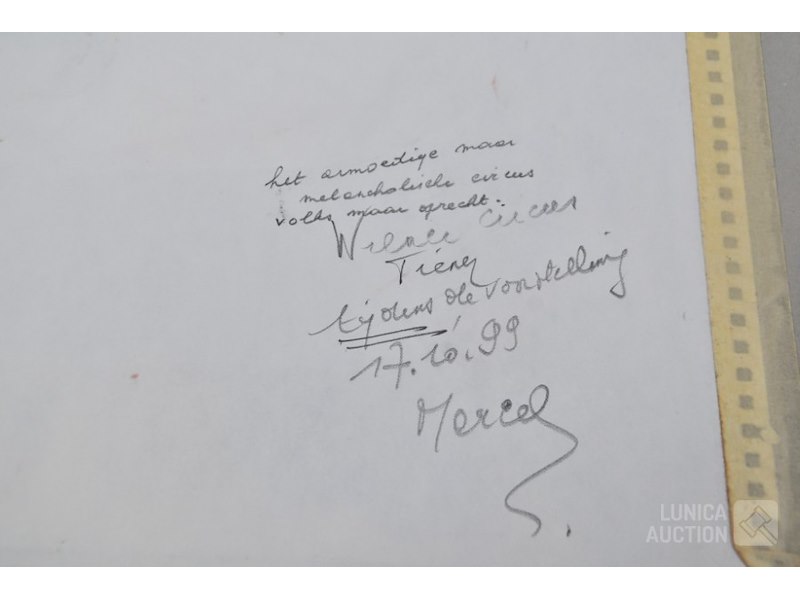 het armoedige maar
melancholische circus
volks maar oprecht.
Circus
Tienen
tijdens de voorstelling
17.10.99
Marcel
LUNICA
AUCTION